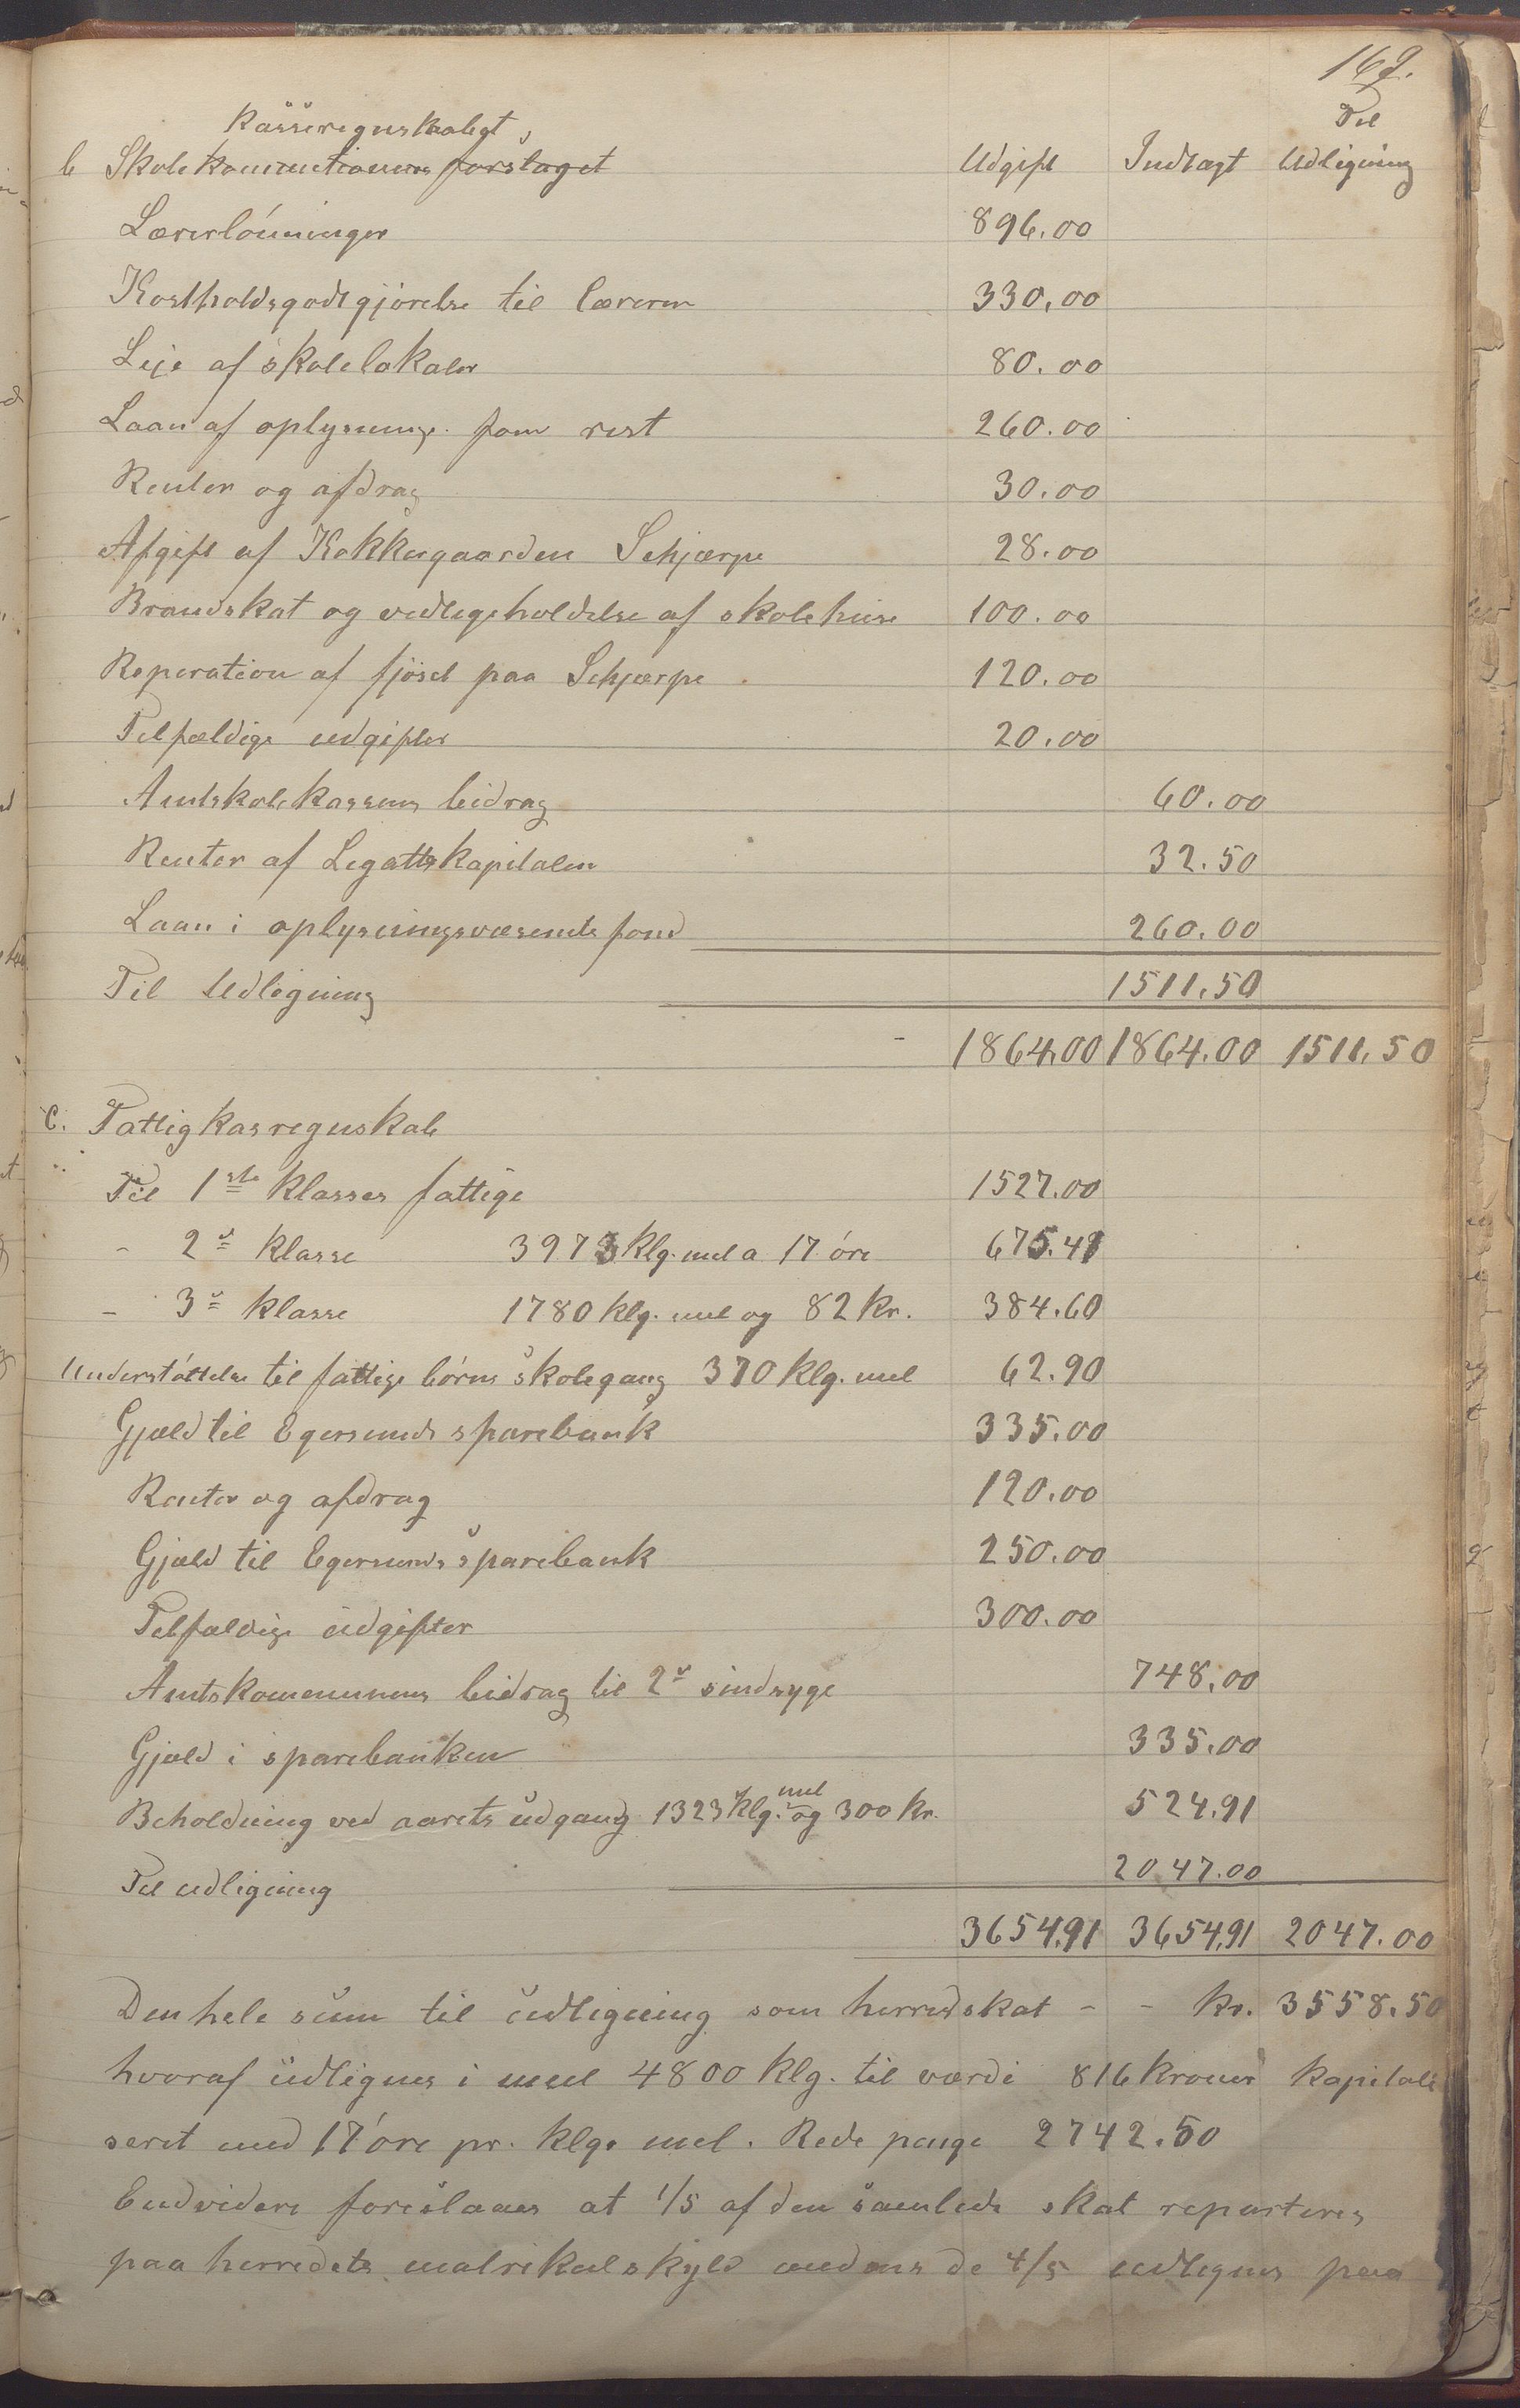 162.
Kasseregnskabet,
Til
b Skolekommunens forslaget Udgift Indtægt Udligning
Lærerlönninger 896.00
Kostholdsgodtgjörelse til læreren 330.00
Leje af skolelokaler 80.00
Laan af oplysnings. fom rest 260.00
Renter og afdrag 30.00
Afgift af Kokkegaarden Schjærpe 28.00
Brandskat og vedligeholdelse af skolehuse 100.00
Reperation af fjöset paa Schjærpe 120.00
Tilfældige udgifter 20.00
Amtskolekassens bidrag 60.00
Renter af Legatskapitalen 32.50
Laan i oplysningsvæsenets fond 260.00
Til Udligning 1511.50
1864.00 1864.00 1511.50
C. Fattigkasregnskab
Til 1ste klasses fattige 1527.00
- 2den klasse 3973 klg. mel a 17 öre 675.41
- 3de klasse 1780 klg. mel og 82 kr. 384.60
Understöttelse til fattige börns skolegang 370 klg. mel 62.90
Gjæld til Egersunds sparebank 335.00
Renter og afdrag 120.00
Gjæld til Egersunds sparebank 250.00
Tilfældige udgifter 300.00
Amtskommunens bidrag til 2de sindsyge 748.00
Gjæld i sparebanken 335.00
Beholdning ved aarets udgang 1323 klg. mel og 300 kr. 524.91
Til udligning 2047.00
3654.91 3654.91 2047.00
Den hele sum til udligning som herredskat - - kr. 3558.50
hvoraf udlignes i mel 4800 klg. til værdi 816 kroner kapitali
seret med 17 öre pr. klg. mel. Rede penge 2742.50
Endvidere foreslaaes at 1/5 af den samlede skat reparteres
paa herredets matrikulskyld medens de 4/5 udlignes paa